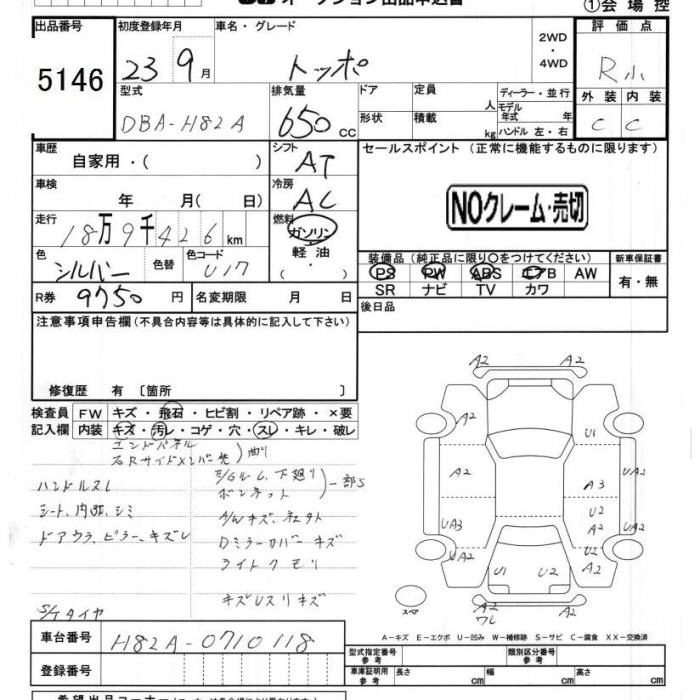 オークション出品申込書
①会場控
出品番号
5146
初度登録年月
23 9月
車名・グレード
トッポ
2WD・4WD
評価点
R小
外装 内装
C C
型式
DBA-H82A
排気量
650 CC
ドア
定員
人
ディーラー・並行
形状
積載
kg
モデル年式 年
ハンドル 左・右
車歴
自家用・( )
シフト
AT
車検
年 月( 日)
冷房
AC
走行
18万9千426km
燃料
ガソリン
軽油
( ・ )
色
シルバー
色替
色コード
U17
R券 9750円
名変期限 月 日
セールスポイント (正常に機能するものに限ります)
NOクレーム・売切
装備品(純正品に限り○をつけてください)
PS PW ABS エアB AW
SR ナビ TV カワ
新車保証書
有・無
後日品
注意事項申告欄(不具合内容等は具体的に記入して下さい)
修復歴 有 〔箇所 〕
検査員記入欄
FW キズ・飛石・ヒビ割・リペア跡・×要
内装 キズ・汚レ・コゲ・穴・スレ・キレ・破レ
エンドパネル
右Rサイドメンバー先 曲り
ハンドルスレ
シート、内張、シミ
ドアウラ、ピラー、キズレ
E/Gルーム、下廻り
ボンネット 一部S
A/Wキズ、
Dミラーカバーキズ
ライトクモリ
キズUスリキズ
S/Tタイヤ
A2 A2
A2
U1
A2
A3
UA2
U2
A2
UA3
UA2
U2
UA2
U1 U2
A2
スペア
A2
ワレ
A2
A-キズ E-エクボ U-凹み W-補修跡 S-サビ C-腐食 XX-交換済
車台番号
H82A-0710118
登録番号
型式指定番号 参考
類別区分番号 参考
車庫証明用 参考
長さ cm 幅 cm 高さ cm